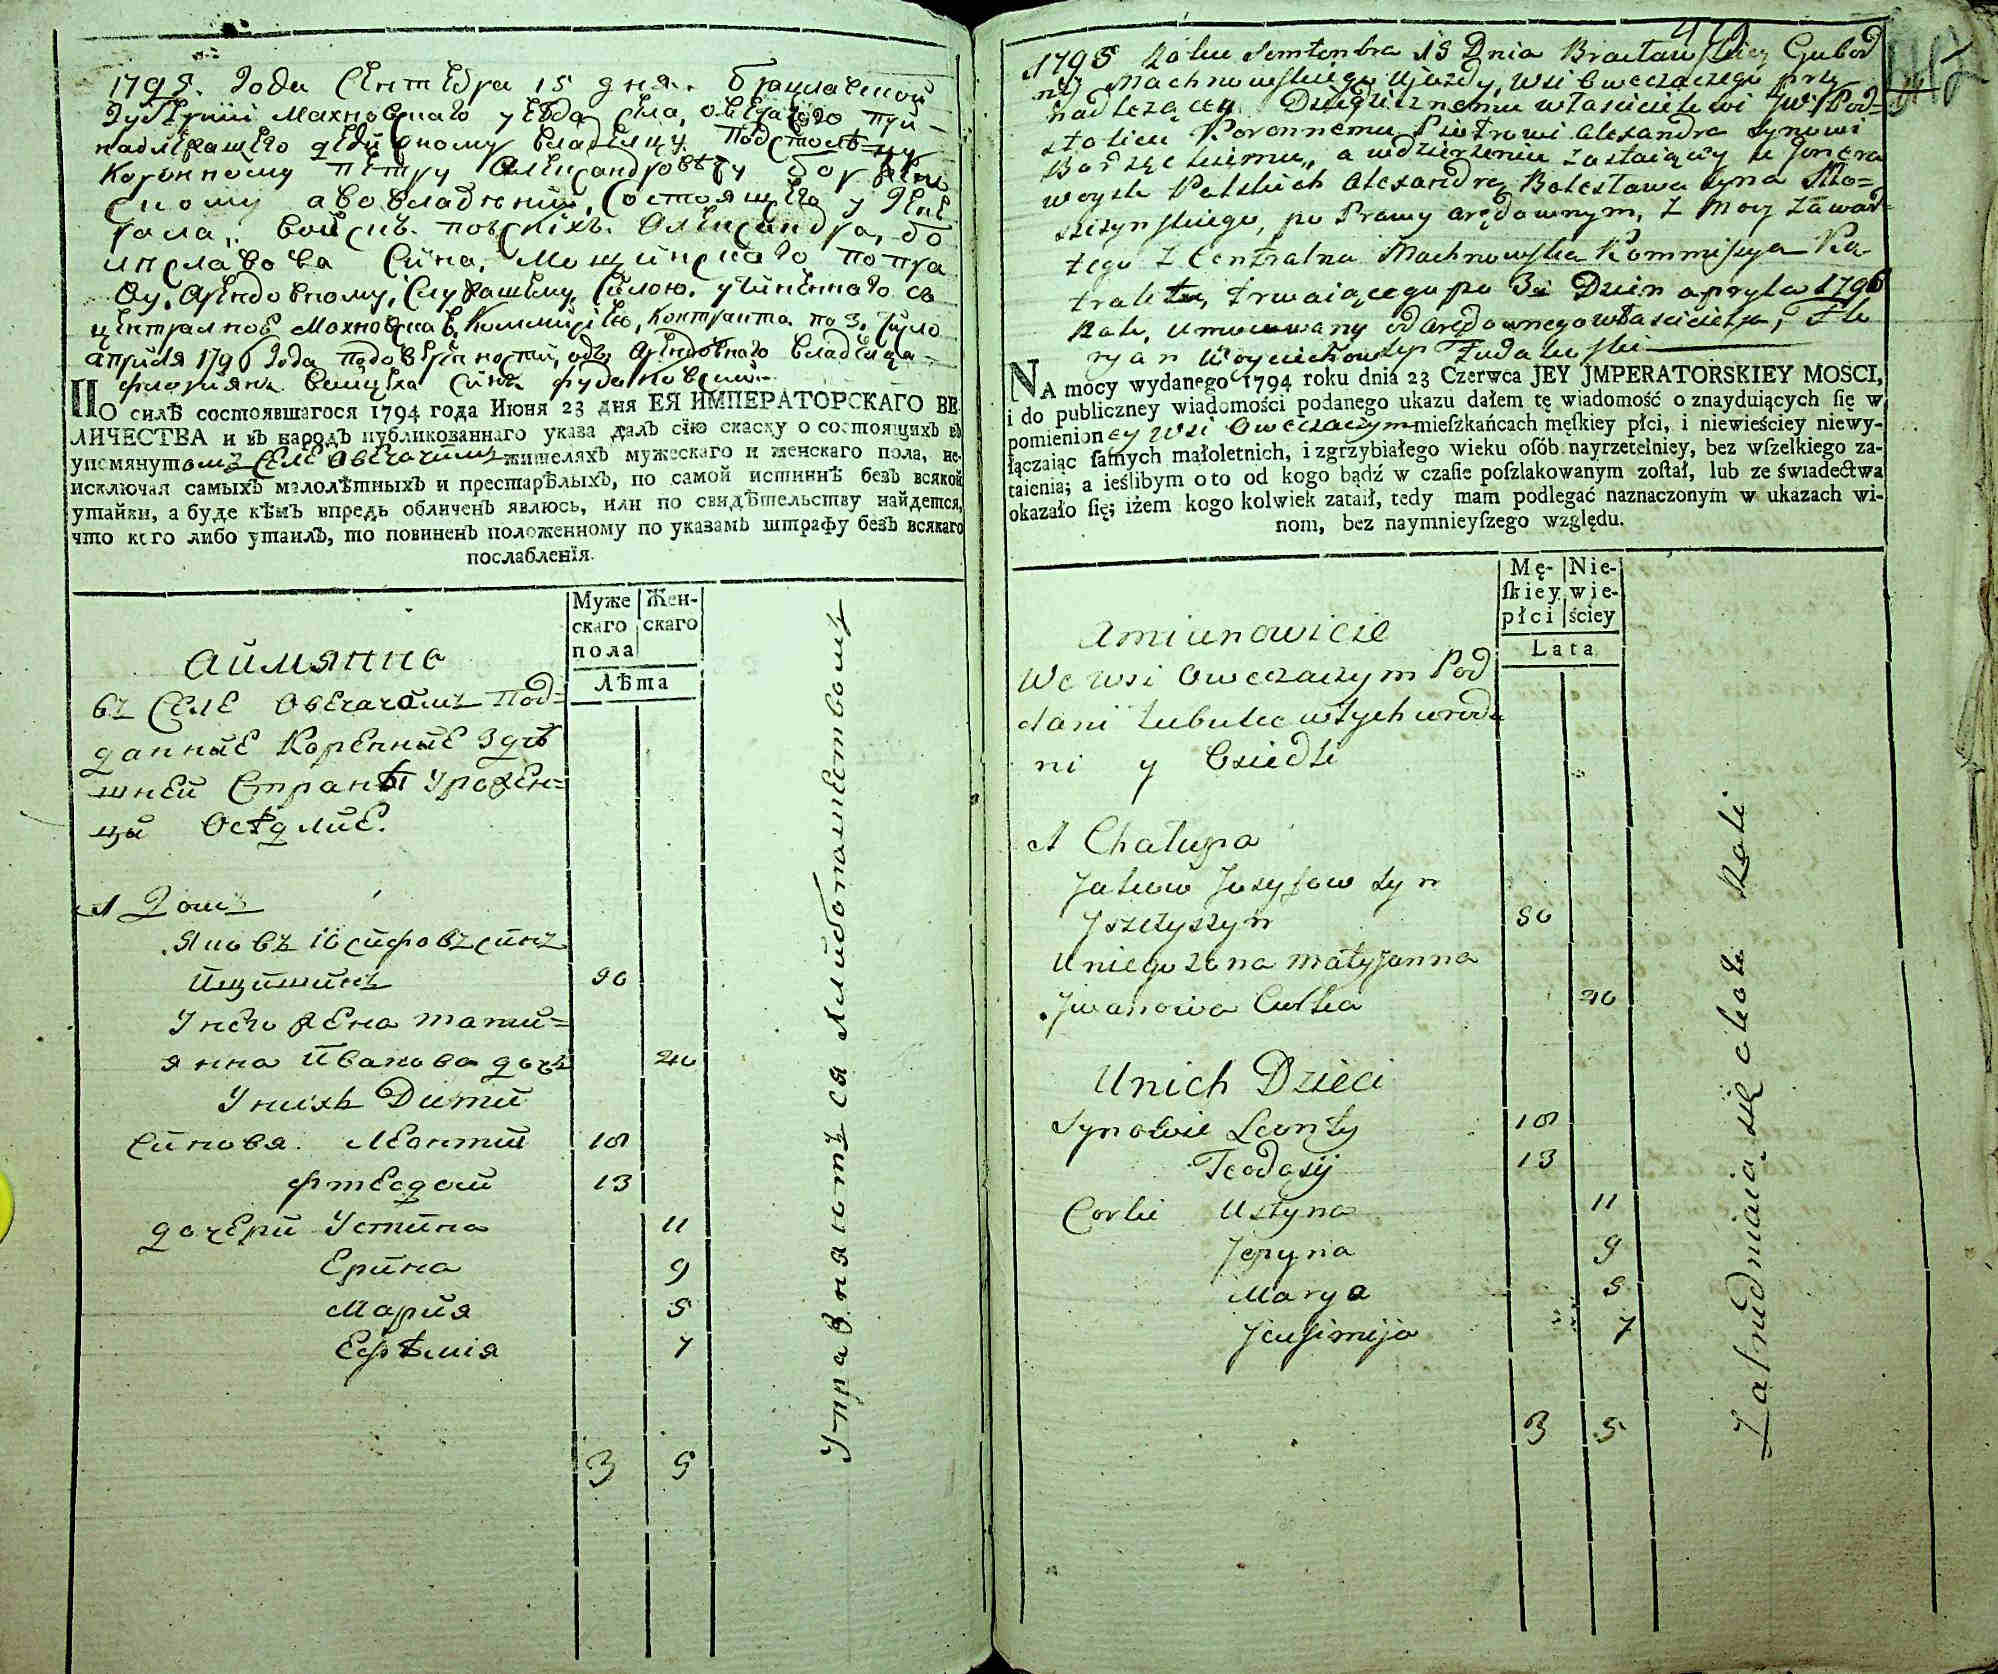 1795. Года Сентебра 15 дня. брацлавской
Губернии Махновскаго уезда села, овечачого при-
надлежащего дедичному владелцу подстолѣму
Коронному петру Александровѣчу
скому а во владении, состоящего у Гене
рала, войскъ. полскихъ. Александра, бо
Сина, Мощинскаго по пра
ву, Арендовному, служащему, силою. учиненного съ
централною Махновскою, Коммисіею, Контракта по 3. число
априля 1796 Года одъ Арендовнаго владелца
флориянъ Синъ
ПО силѣ состоявшагося 1794 года Июня 23 дня ЕЯ ИМПЕРАТОРСКАГО ВЕ-
ЛИЧЕСТВА и въ народъ публикованнаго указа далъ сію скаску о состоящихъ въ
упомянутомъ Селе Овечачимъ жителяхъ мужескаго и женскаго пола, не-
исключая самыхъ малолѣтныхъ и престарѣлыхъ, по самой истиннѣ безъ всякой
утайки, а буде кѣмъ впредь обличенъ явлюсь, или по свидѣтельству найдется,
что кого либо утаилъ, то повиненъ положенному по указамъ штрафу безъ всякаго
послабленія.
Муже Жен-
скаго скаго
пола
Лѣта
аимянно
въ Селе Овечачомъ Под-
данные Коренные Здѣ
шней Странѣ Урожен-
ци Осѣдлие.
1 Домъ
Яковъ Іосифовъ синъ
Ищишинъ 50
У него жена тати-
янна Иванова дочъ 40
У нихъ Дити
Синовя Леонтий 18
фтеодосий 13
дочери Устина 11
Ерина 9
Мария 5
Ефѣмія 7
3 5
Упражняются хлиботашествомъ
1795 Roku Semtenbra 15 Dnia Bracławskiey Gubor
nij Machnowskiego Ujazdy, wsi Owczaczego przy
nadlezącey Dziedzicznemu właścicielowi JW. Pod-
stolicu Koronnemu Piotrowi Alexandra Synowi
a w dzierżeniu zostaiącey u Jenera
woysk Polskich Alexandra Bolesława Syna Mo-
szczynskiego, po Prawu arędownym, z Mocy Zawar
tego z Centralną Machnowską Kommisyą Ko
traktu, trwaiącego po 3ci Dzien apryla 1796
Roku, umocowany od arędownego właściciela, Flo
ryan Woyciechow Syn
NA mocy wydanego 1794 roku dnia 23 Czerwca JEY JMPERATORSKIEY MOSCI,
i do publiczney wiadomości podanego ukazu dałem tę wiadomość o znayduiących ſię w
pomienioney wsi Owczaczym mieſzkańcach męſkiey płci, i niewieściey niewy-
łączaiąc ſamych małoletnich, i zgrzybiałego wieku oſób nayrzetelniey, bez wſzelkiego za-
taienia; a ieślibym o to od kogo bądź w czaſie poſzlakowanym zoſtał, lub ze świadectwa
okazało ſię; iżem kogo kolwiek zataił, tedy mam podlegać naznaczonym w ukazach wi-
nom, bez naymnieyſzego względu.
Mę- Nie-
ſkiey wie-
płci ściey
Lata
Amiunowicie
We wsi Owczaczym Pod
dani tubulcow tych urodz
ni y Osiedli
1 Chałupa
Jakow Jusyfow syn
Jszczyszyn 50
U niego zona Matyjanna
Jwanowa Curka 40
U nich Dzieci
Synowie Leonty 18
Teodosij 13
Corki Ustyna 11
Jeryna 9
Marya 5
Jeufimija 7
3 5
Zatrudniaią się około Roli